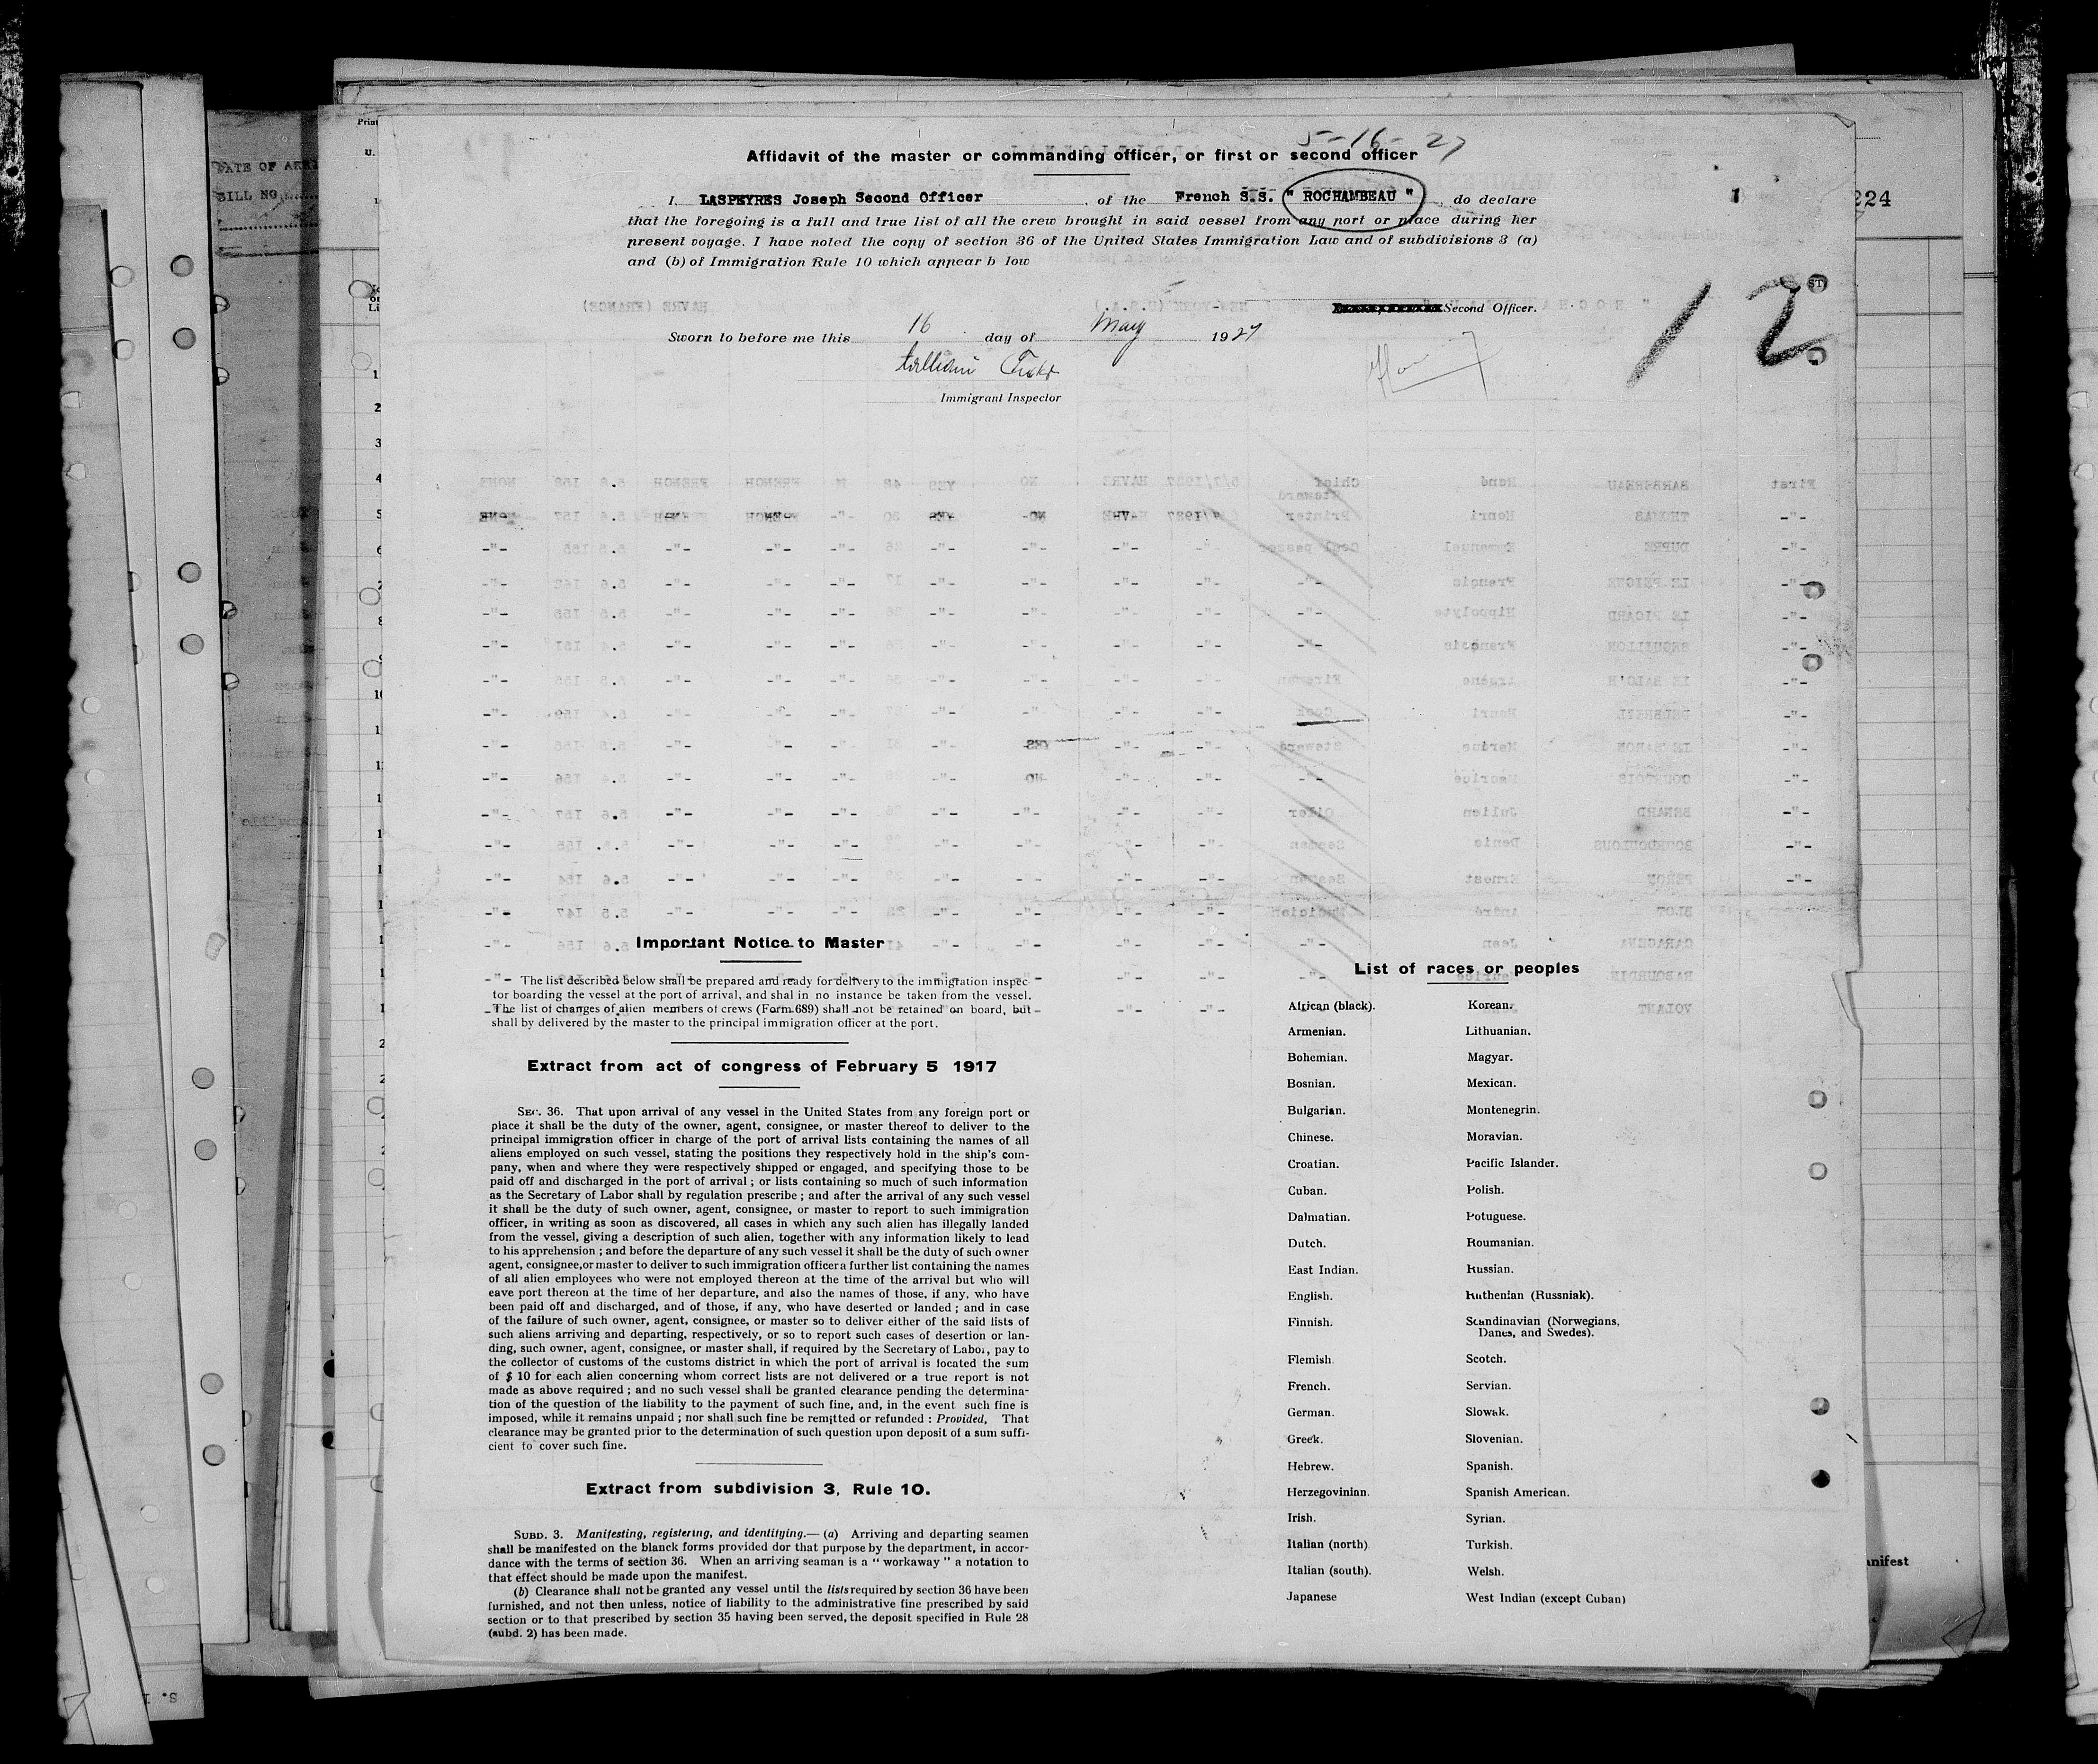 5-16-27
Affidavit of the master or commanding officer, or first or second officer
I, LASPEYRES Joseph Second Officer, of the French S.S. " ROCHAMBEAU ", do declare
that the foregoing is a full and true list of all the crew brought in said vessel from any port or place during her
present voyage. I have noted the copy of section 36 of the United States Immigration Law and of subdivisions 3 (a)
and (b) of Immigration Rule 10 which appear b low
1
224
12
Second Officer.
Sworn to before me this 16 day of May 1927
William
Immigrant Inspector
Important Notice to Master
The list described below shall be prepared and ready for delivery to the immigration inspec-
tor boarding the vessel at the port of arrival, and shal in no instance be taken from the vessel.
The list of changes of alien members of crews (Form 689) shall not be retained on board, but
shall by delivered by the master to the principal immigration officer at the port.
Extract from act of congress of February 5 1917
SEC. 36. That upon arrival of any vessel in the United States from any foreign port or
place it shall be the duty of the owner, agent, consignee, or master thereof to deliver to the
principal immigration officer in charge of the port of arrival lists containing the names of all
aliens employed on such vessel, stating the positions they respectively hold in the ship's com-
pany, when and where they were respectively shipped or engaged, and specifying those to be
paid off and discharged in the port of arrival ; or lists containing so much of such information
as the Secretary of Labor shall by regulation prescribe ; and after the arrival of any such vessel
it shall be the duty of such owner, agent, consignee, or master to report to such immigration
officer, in writing as soon as discovered, all cases in which any such alien has illegally landed
from the vessel, giving a description of such alien, together with any information likely to lead
to his apprehension ; and before the departure of any such vessel it shall be the duty of such owner
agent, consignee, or master to deliver to such immigration officer a further list containing the names
of all alien employees who were not employed thereon at the time of the arrival but who will
eave port thereon at the time of her departure, and also the names of those, if any, who have
been paid off and discharged, and of those, if any, who have deserted or landed ; and in case
of the failure of such owner, agent, consignee, or master so to deliver either of the said lists of
such aliens arriving and departing, respectively, or so to report such cases of desertion or lan-
ding, such owner, agent, consignee, or master shall, if required by the Secretary of Labor, pay to
the collector of customs of the customs district in which the port of arrival is located the sum
of $ 10 for each alien concerning whom correct lists are not delivered or a true report is not
made as above required ; and no such vessel shall be granted clearance pending the determina-
tion of the question of the liability to the payment of such fine, and, in the event such fine is
imposed, while it remains unpaid ; nor shall such fine be remitted or refunded : Provided, That
clearance may be granted prior to the determination of such question upon deposit of a sum suffi-
cient to cover such fine.
Extract from subdivision 3, Rule 10.
SUBD. 3. Manifesting, registering, and identifying.— (a) Arriving and departing seamen
shall be manifested on the blanck forms provided dor that purpose by the department, in accor-
dance with the terms of section 36. When an arriving seaman is a " workaway " a notation to
that effect should be made upon the manifest.
(b) Clearance shall not be granted any vessel until the lists required by section 36 have been
furnished, and not then unless, notice of liability to the administrative fine prescribed by said
section or to that prescribed by section 35 having been served, the deposit specified in Rule 28
(subd. 2) has been made.
List of races or peoples
African (black).
Armenian.
Bohemian.
Bosnian.
Bulgarian.
Chinese.
Croatian.
Cuban.
Dalmatian.
Dutch.
East Indian.
English.
Finnish.
Flemish.
French.
German.
Greek.
Hebrew.
Herzegovinian.
Irish.
Italian (north)
Italian (south).
Japanese
Korean.
Lithuanian.
Magyar.
Mexican.
Montenegrin.
Moravian.
Pacific Islander.
Polish.
Potuguese.
Roumanian.
Russian.
Ruthenian (Russniak).
Scandinavian (Norwegians,
Danes, and Swedes).
Scotch.
Servian.
Slowak.
Slovenian.
Spanish.
Spanish American.
Syrian.
Turkish.
Welsh.
West Indian (except Cuban)